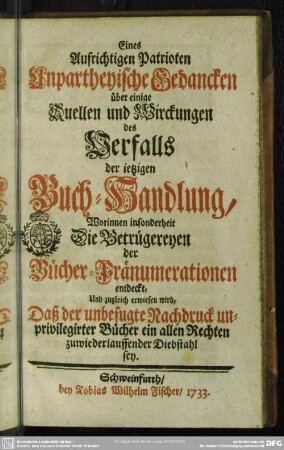 Eines
Aufrichtigen Patrioten
Unpartheyische Gedancken
über einige
Quellen und Wirckungen
des
Verfalls
der ietzigen
Buch-Handlung,
Worinnen insonderheit
Die Betrügereyen
der
Bücher-Pränumerationen
entdeckt,
Und zugleich erwiesen wird,
Daß der unbefugte Nachdruck un-
privilegirter Bücher ein allen Rechten
zuwiederlauffender Diebstahl
sey.
Schweinfurth,
bey Tobias Wilhelm Fischer, 1733.
DFG